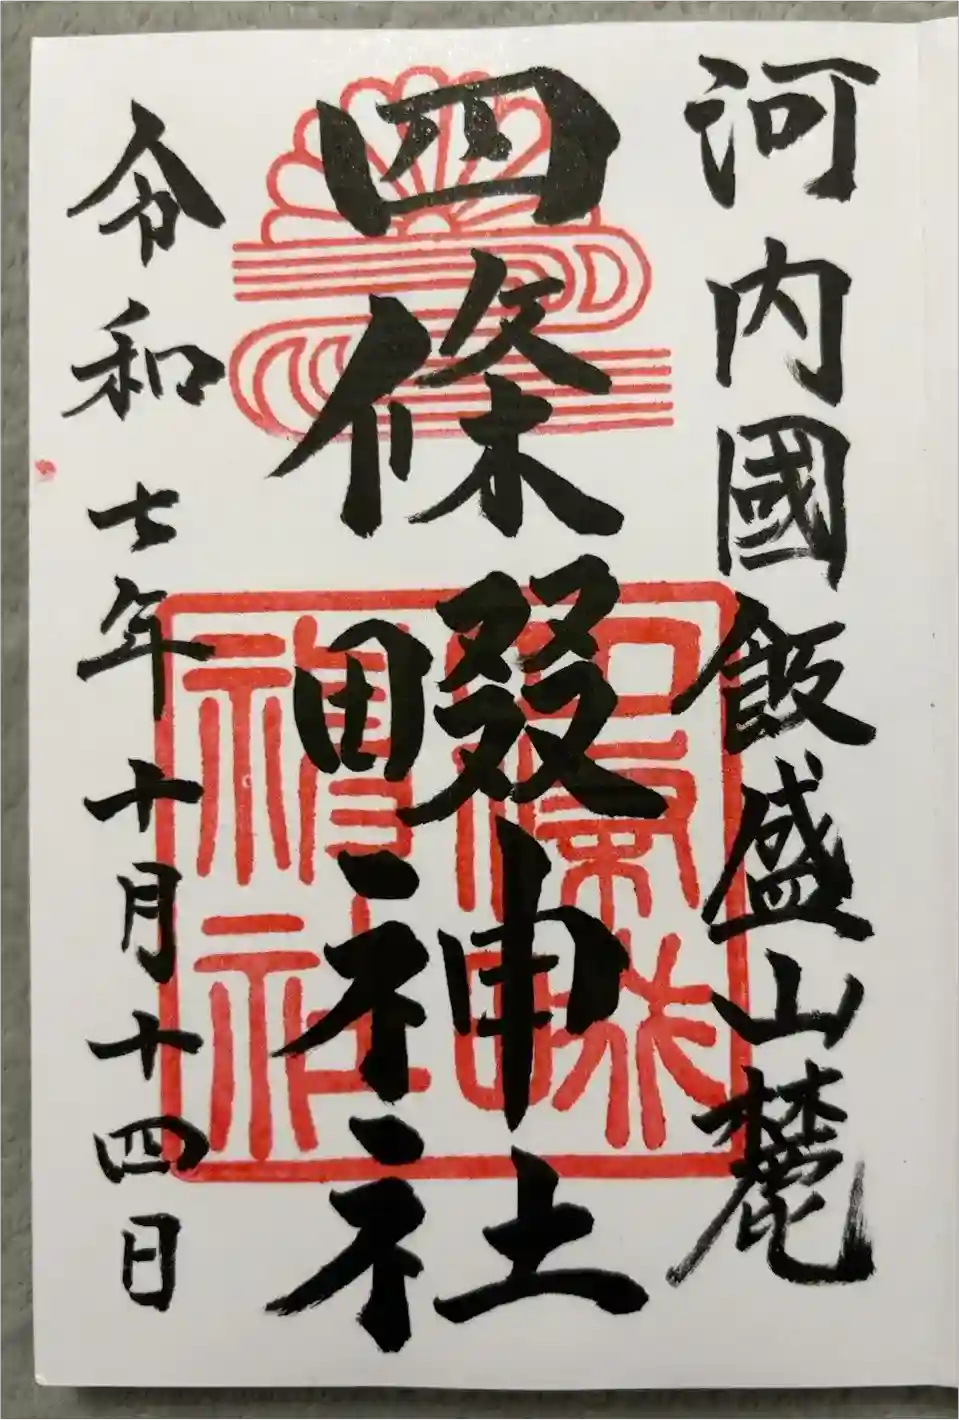 河内國飯盛山麓
四條畷神社
令和七年十月十四日
四條畷
神社